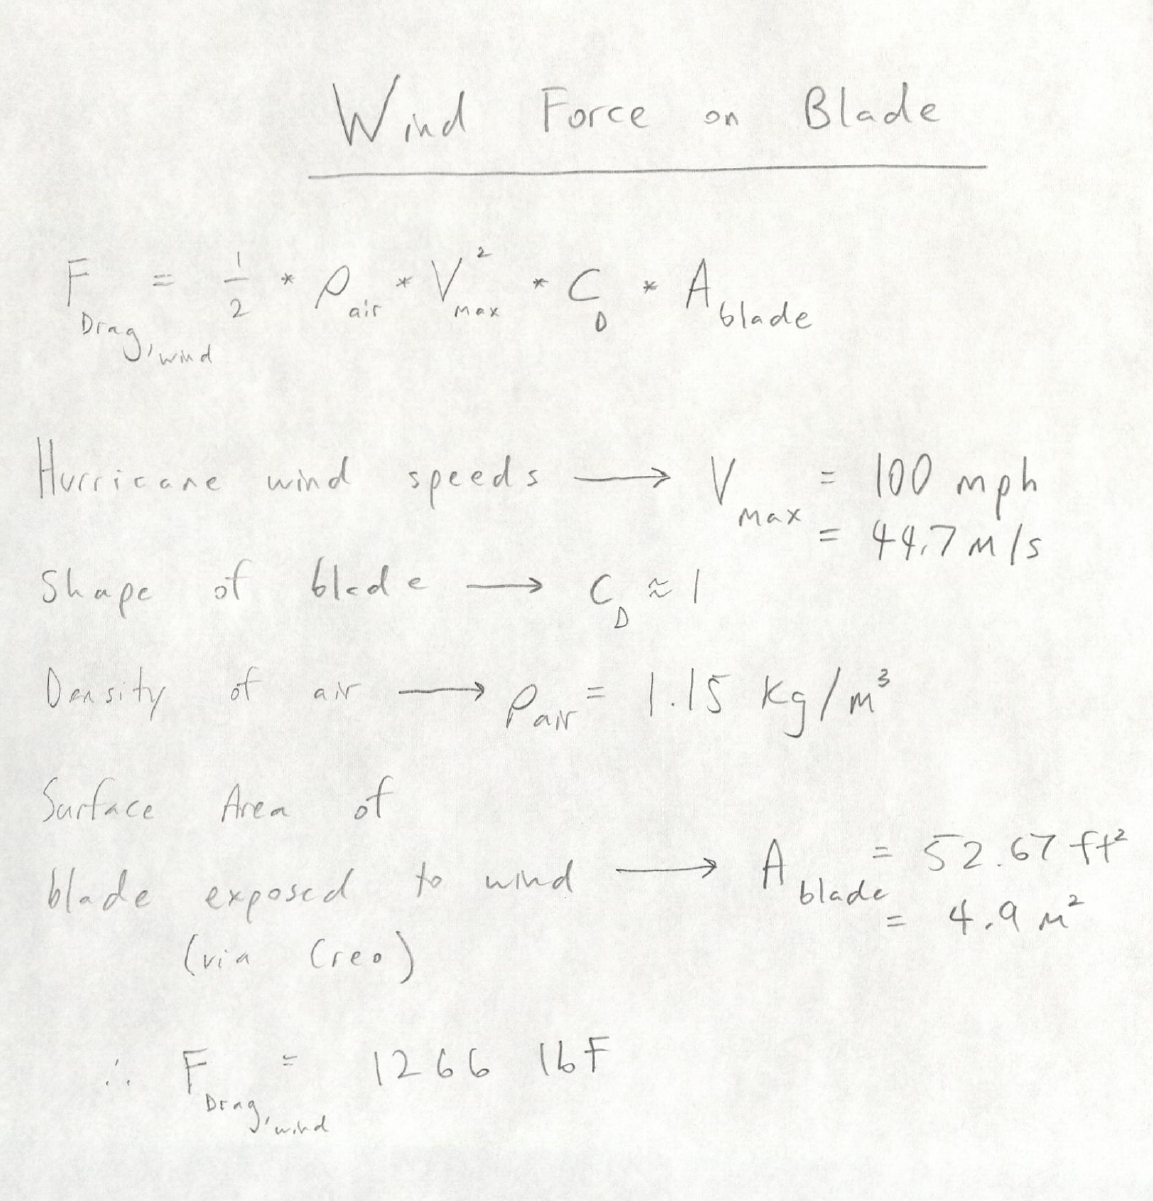 Wind Force on Blade
F Drag,wind = 1/2 * ρ air * V max ² * C D * A blade
Hurricane wind speeds → V max = 100 mph
= 44.7 m/s
Shape of blade → C D ≈ 1
Density of air → ρ air = 1.15 kg/m³
Surface Area of
blade exposed to wind → A blade = 52.67 ft²
= 4.9 m²
(via Creo)
∴ F Drag,wind = 1266 lbF